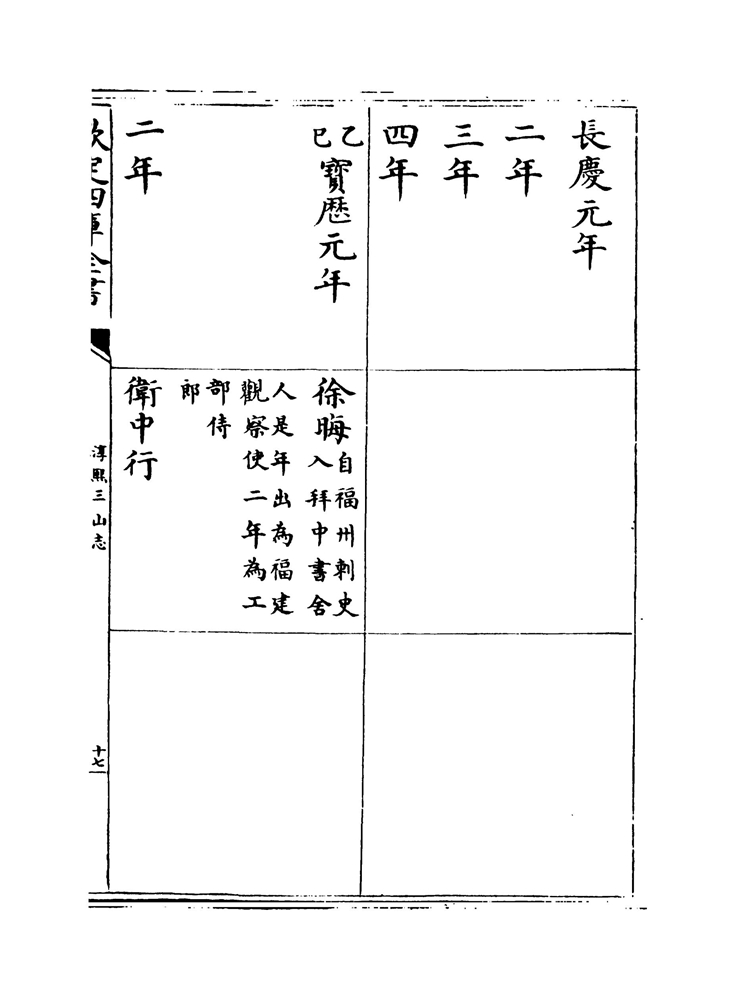 長慶元年
二年
三年
四年
乙巳寶歴元年
徐晦自福州刺史入拜中書舍
人是年出為福建觀察使二年為工
部侍郎
二年
衛中行
欽定四庫全書
淳熙三山志
十七